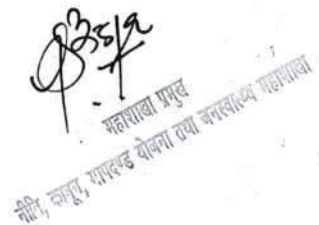 महाशाखा प्रमुख
नीति, कानून, मापदण्ड योजना तथा जनस्वास्थ्य महाशाखा